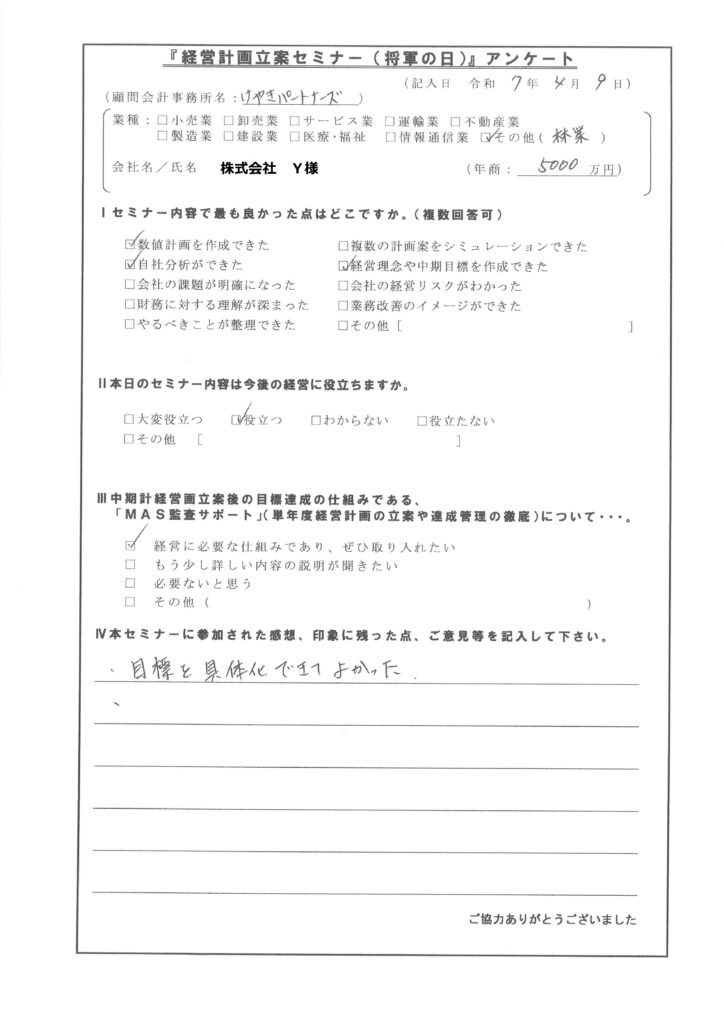 『経営計画立案セミナー(将軍の日)』アンケート
(記入日 令和 7年 4月 9日)
(顧問会計事務所名:けやきパートナーズ)
業種:□小売業 □卸売業 □サービス業 □運輸業 □不動産業
□製造業 □建設業 □医療・福祉 □情報通信業 ☑その他( 林業 )
会社名/氏名 株式会社 Y様 (年商: 5000 万円)
Ⅰセミナー内容で最も良かった点はどこですか。(複数回答可)
☑数値計画を作成できた □複数の計画案をシミュレーションできた
☑自社分析ができた ☑経営理念や中期目標を作成できた
□会社の課題が明確になった □会社の経営リスクがわかった
□財務に対する理解が深まった □業務改善のイメージができた
□やるべきことが整理できた □その他[ ]
Ⅱ本日のセミナー内容は今後の経営に役立ちますか。
□大変役立つ ☑役立つ □わからない □役立たない
□その他 [ ]
Ⅲ中期計経営画立案後の目標達成の仕組みである、
「MAS監査サポート」(単年度経営計画の立案や達成管理の徹底)について・・・。
☑ 経営に必要な仕組みであり、ぜひ取り入れたい
□ もう少し詳しい内容の説明が聞きたい
□ 必要ないと思う
□ その他( )
Ⅳ本セミナーに参加された感想、印象に残った点、ご意見等を記入して下さい。
、目標を具体化できてよかった.
、
ご協力ありがとうございました